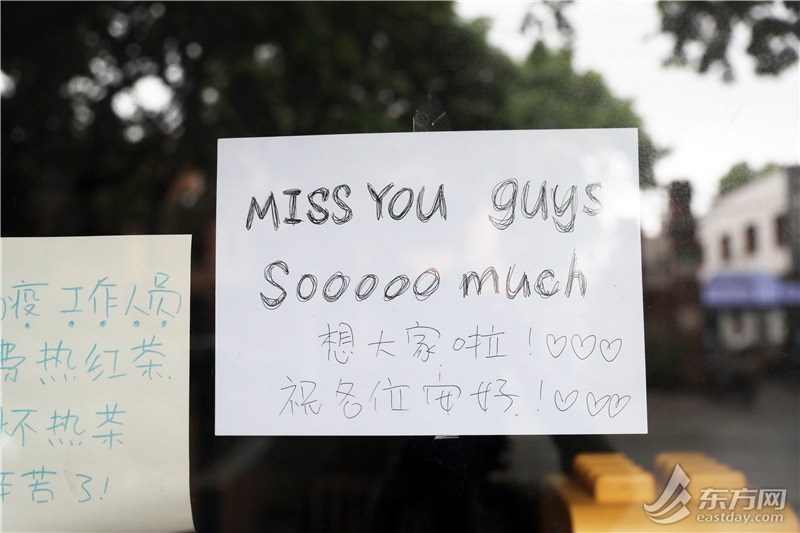 MISS YOU guys
Sooooo much
想大家啦！♡♡♡
祝各位安好！♡♡♡
疫工作人员
费热红茶
杯热茶
辛苦了！
东方网
eastday.com